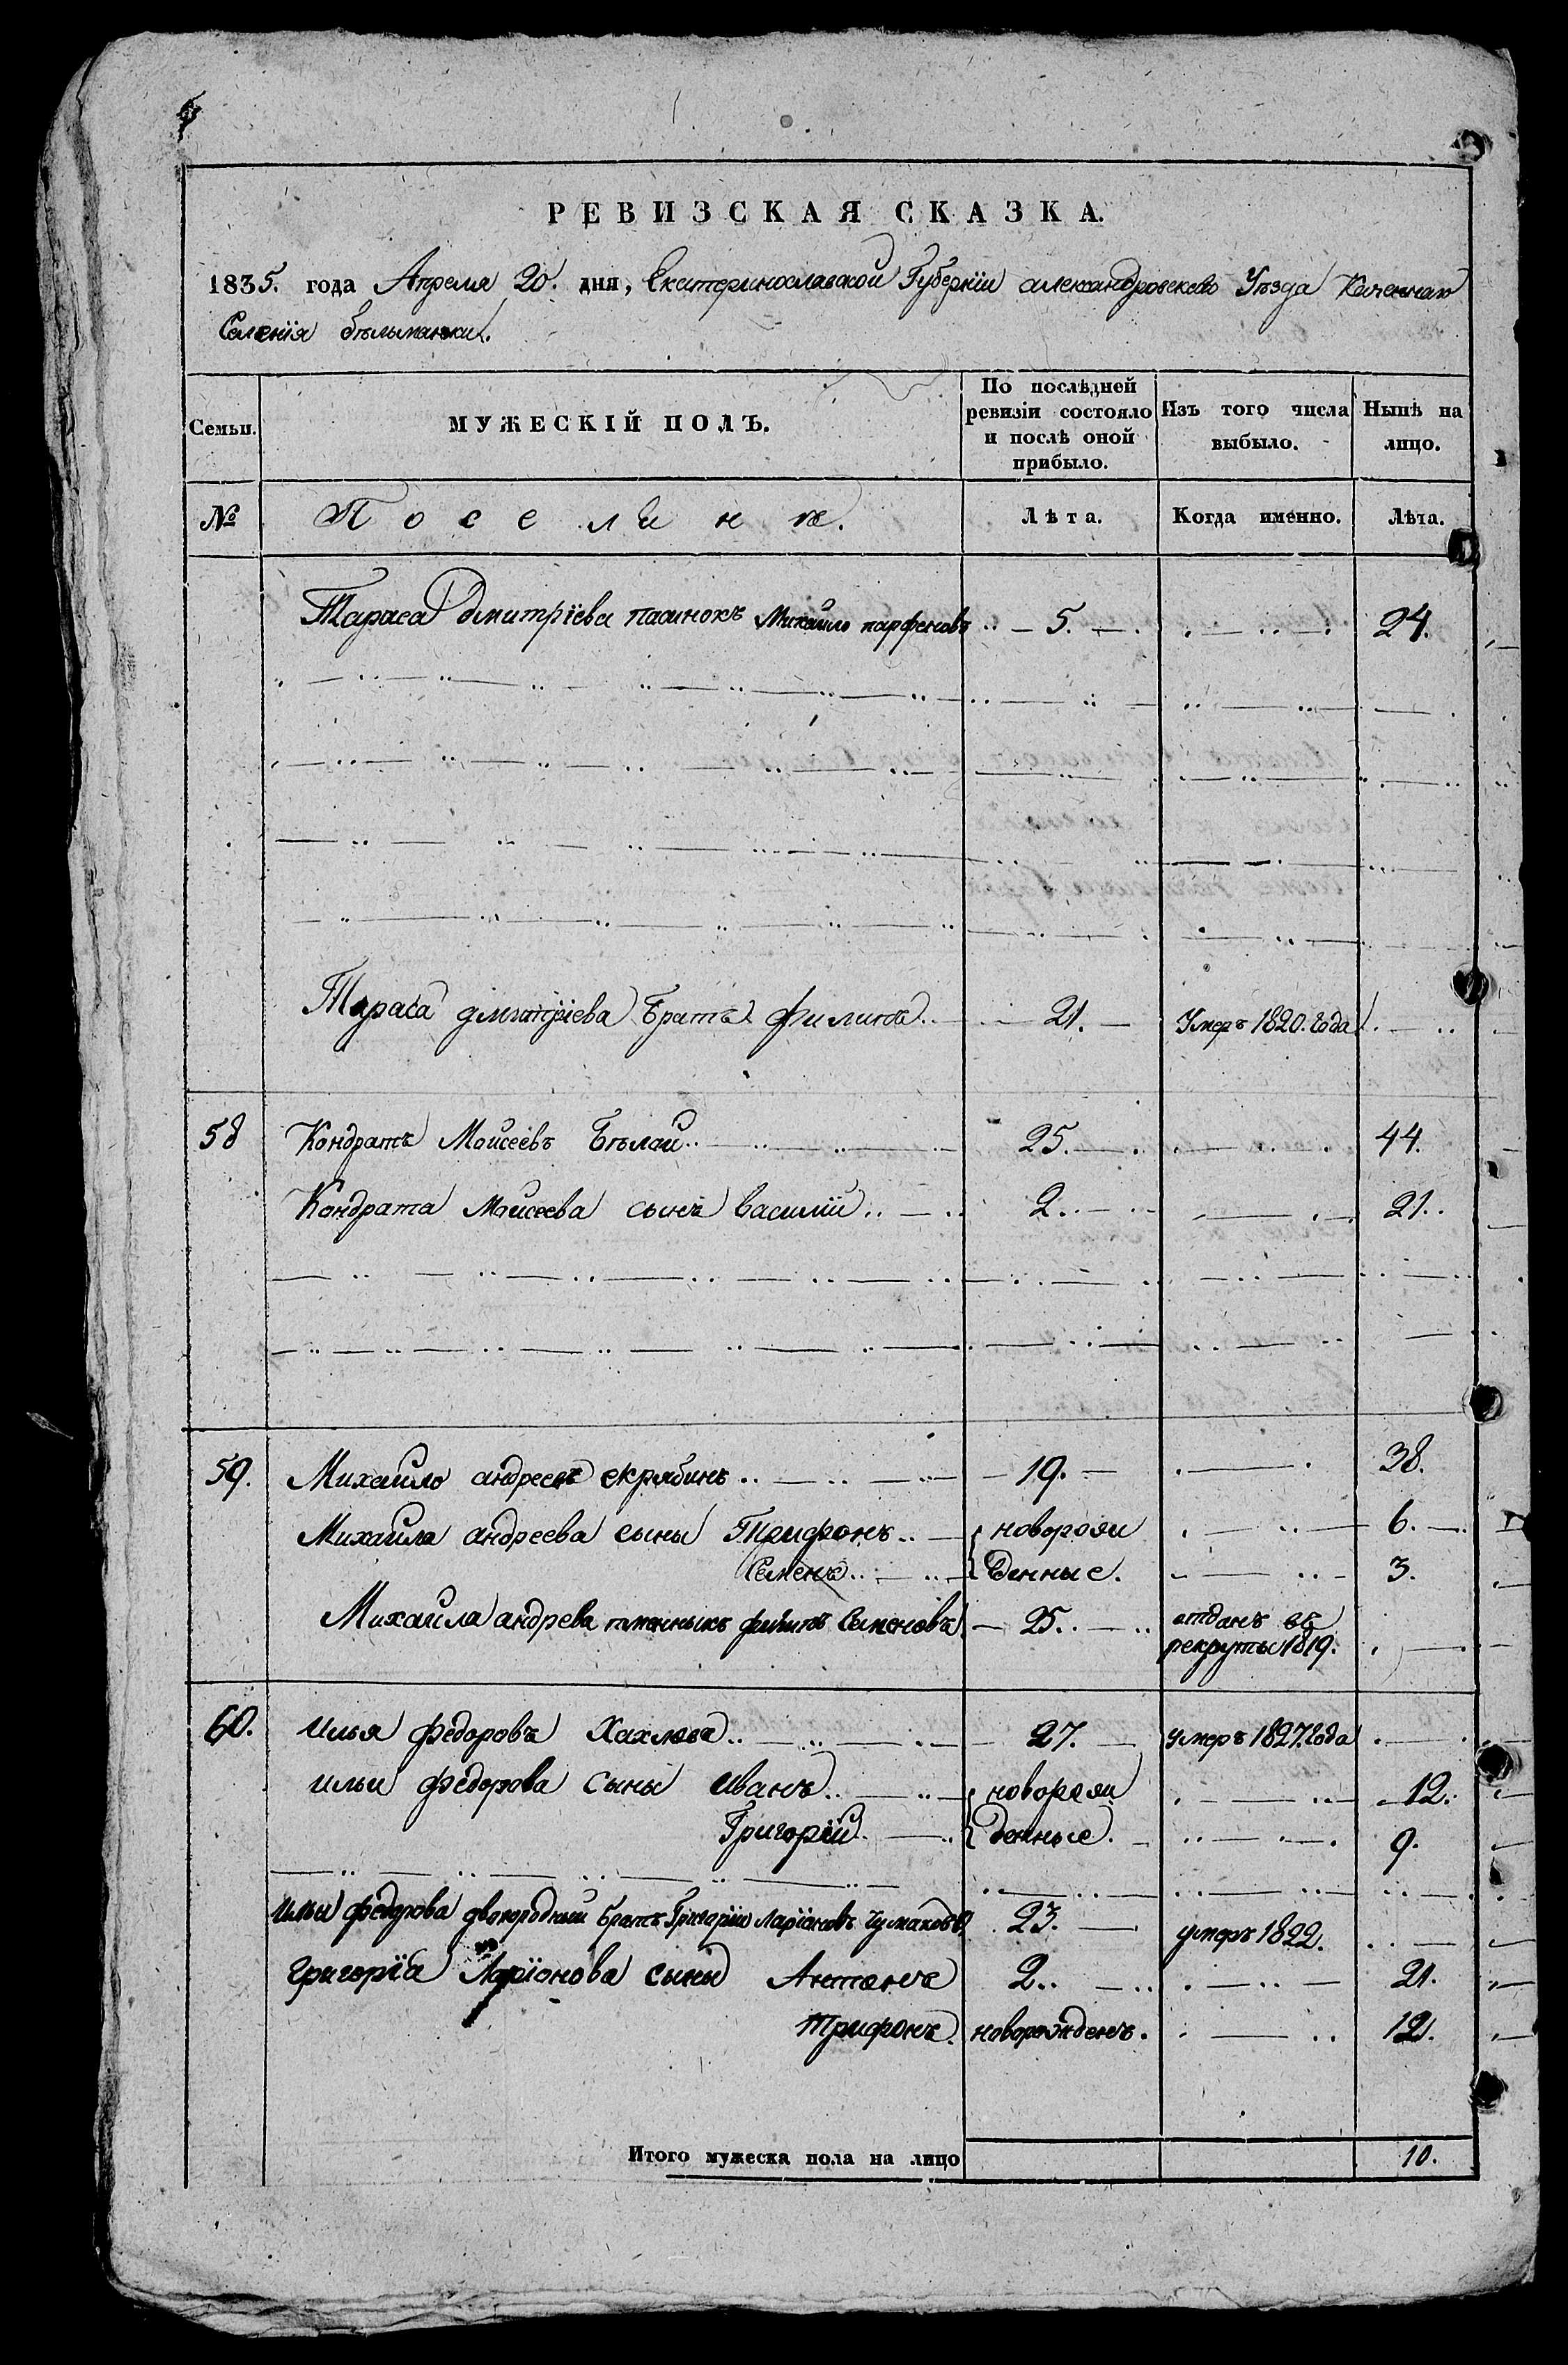 РЕВИЗСКАЯ СКАЗКА.
1835. года Апреля 20. дня, Екатеринославской Губернїи александровскаго Уѣзда Казеннаго
Селенїя бѣльманки.
Семьи. МУЖЕСКІЙ ПОЛЪ. По послѣдней ревизіи состояло и послѣ оной прибыло. Изъ того числа выбыло. Нынѣ на лицо.
№ Поселянѣ. Лѣта. Когда именно. Лѣта.
Тараса дмитрїева пасинокъ Михайло парфеновъ 5. 24.
Тараса дмитрїева братъ филипъ 21. Умеръ 1820. года
58 Кондратъ Моисеевъ Бѣлай 25. 44.
Кондрата Моисеева сынъ василїй 2. 21.
59. Михайло андреевъ скрябинъ 19. 38.
Михайла андреева сыны Трифонъ новорож 6.
Семенъ денные. 3.
Михайла андрева племянникъ филипъ Семеновъ 25. отданъ въ
рекруты 1819.
60. Илья федоровъ Хахловъ 27. умеръ 1827. года
ильи федорова сыны иванъ новорож 12.
Григорїй денные. 9.
ильи федорова двоюродный братъ Григорїй Ларїоновъ Чумаковъ 23. умеръ 1822.
григорїя Ларїонова сыны Антонъ 2. 21.
Трифонъ новорожденъ. 12.
Итого мужеска пола на лицо 10.